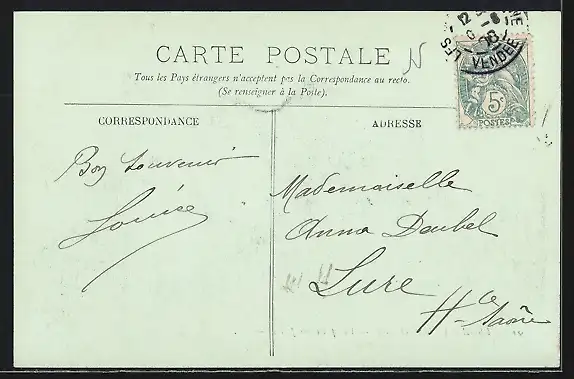 CARTE POSTALE
Tous les Pays étrangers n'acceptent pas la Correspondance au recto.
(Se renseigner à la Poste).
CORRESPONDANCE
ADRESSE
5c
POSTES
VENDEE
Bon Souvenir
Louise
Mademoiselle
Anna Daubel
Lure
Hte Saône